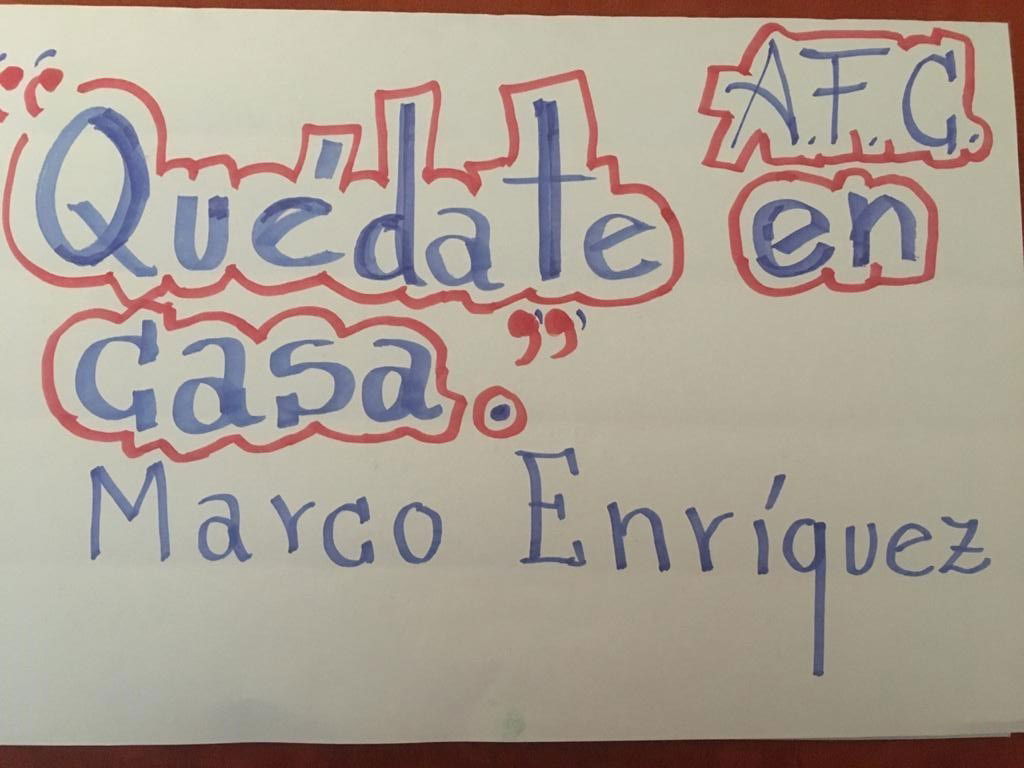 A.F.C.
“Quédate en
casa.”
Marco Enríquez